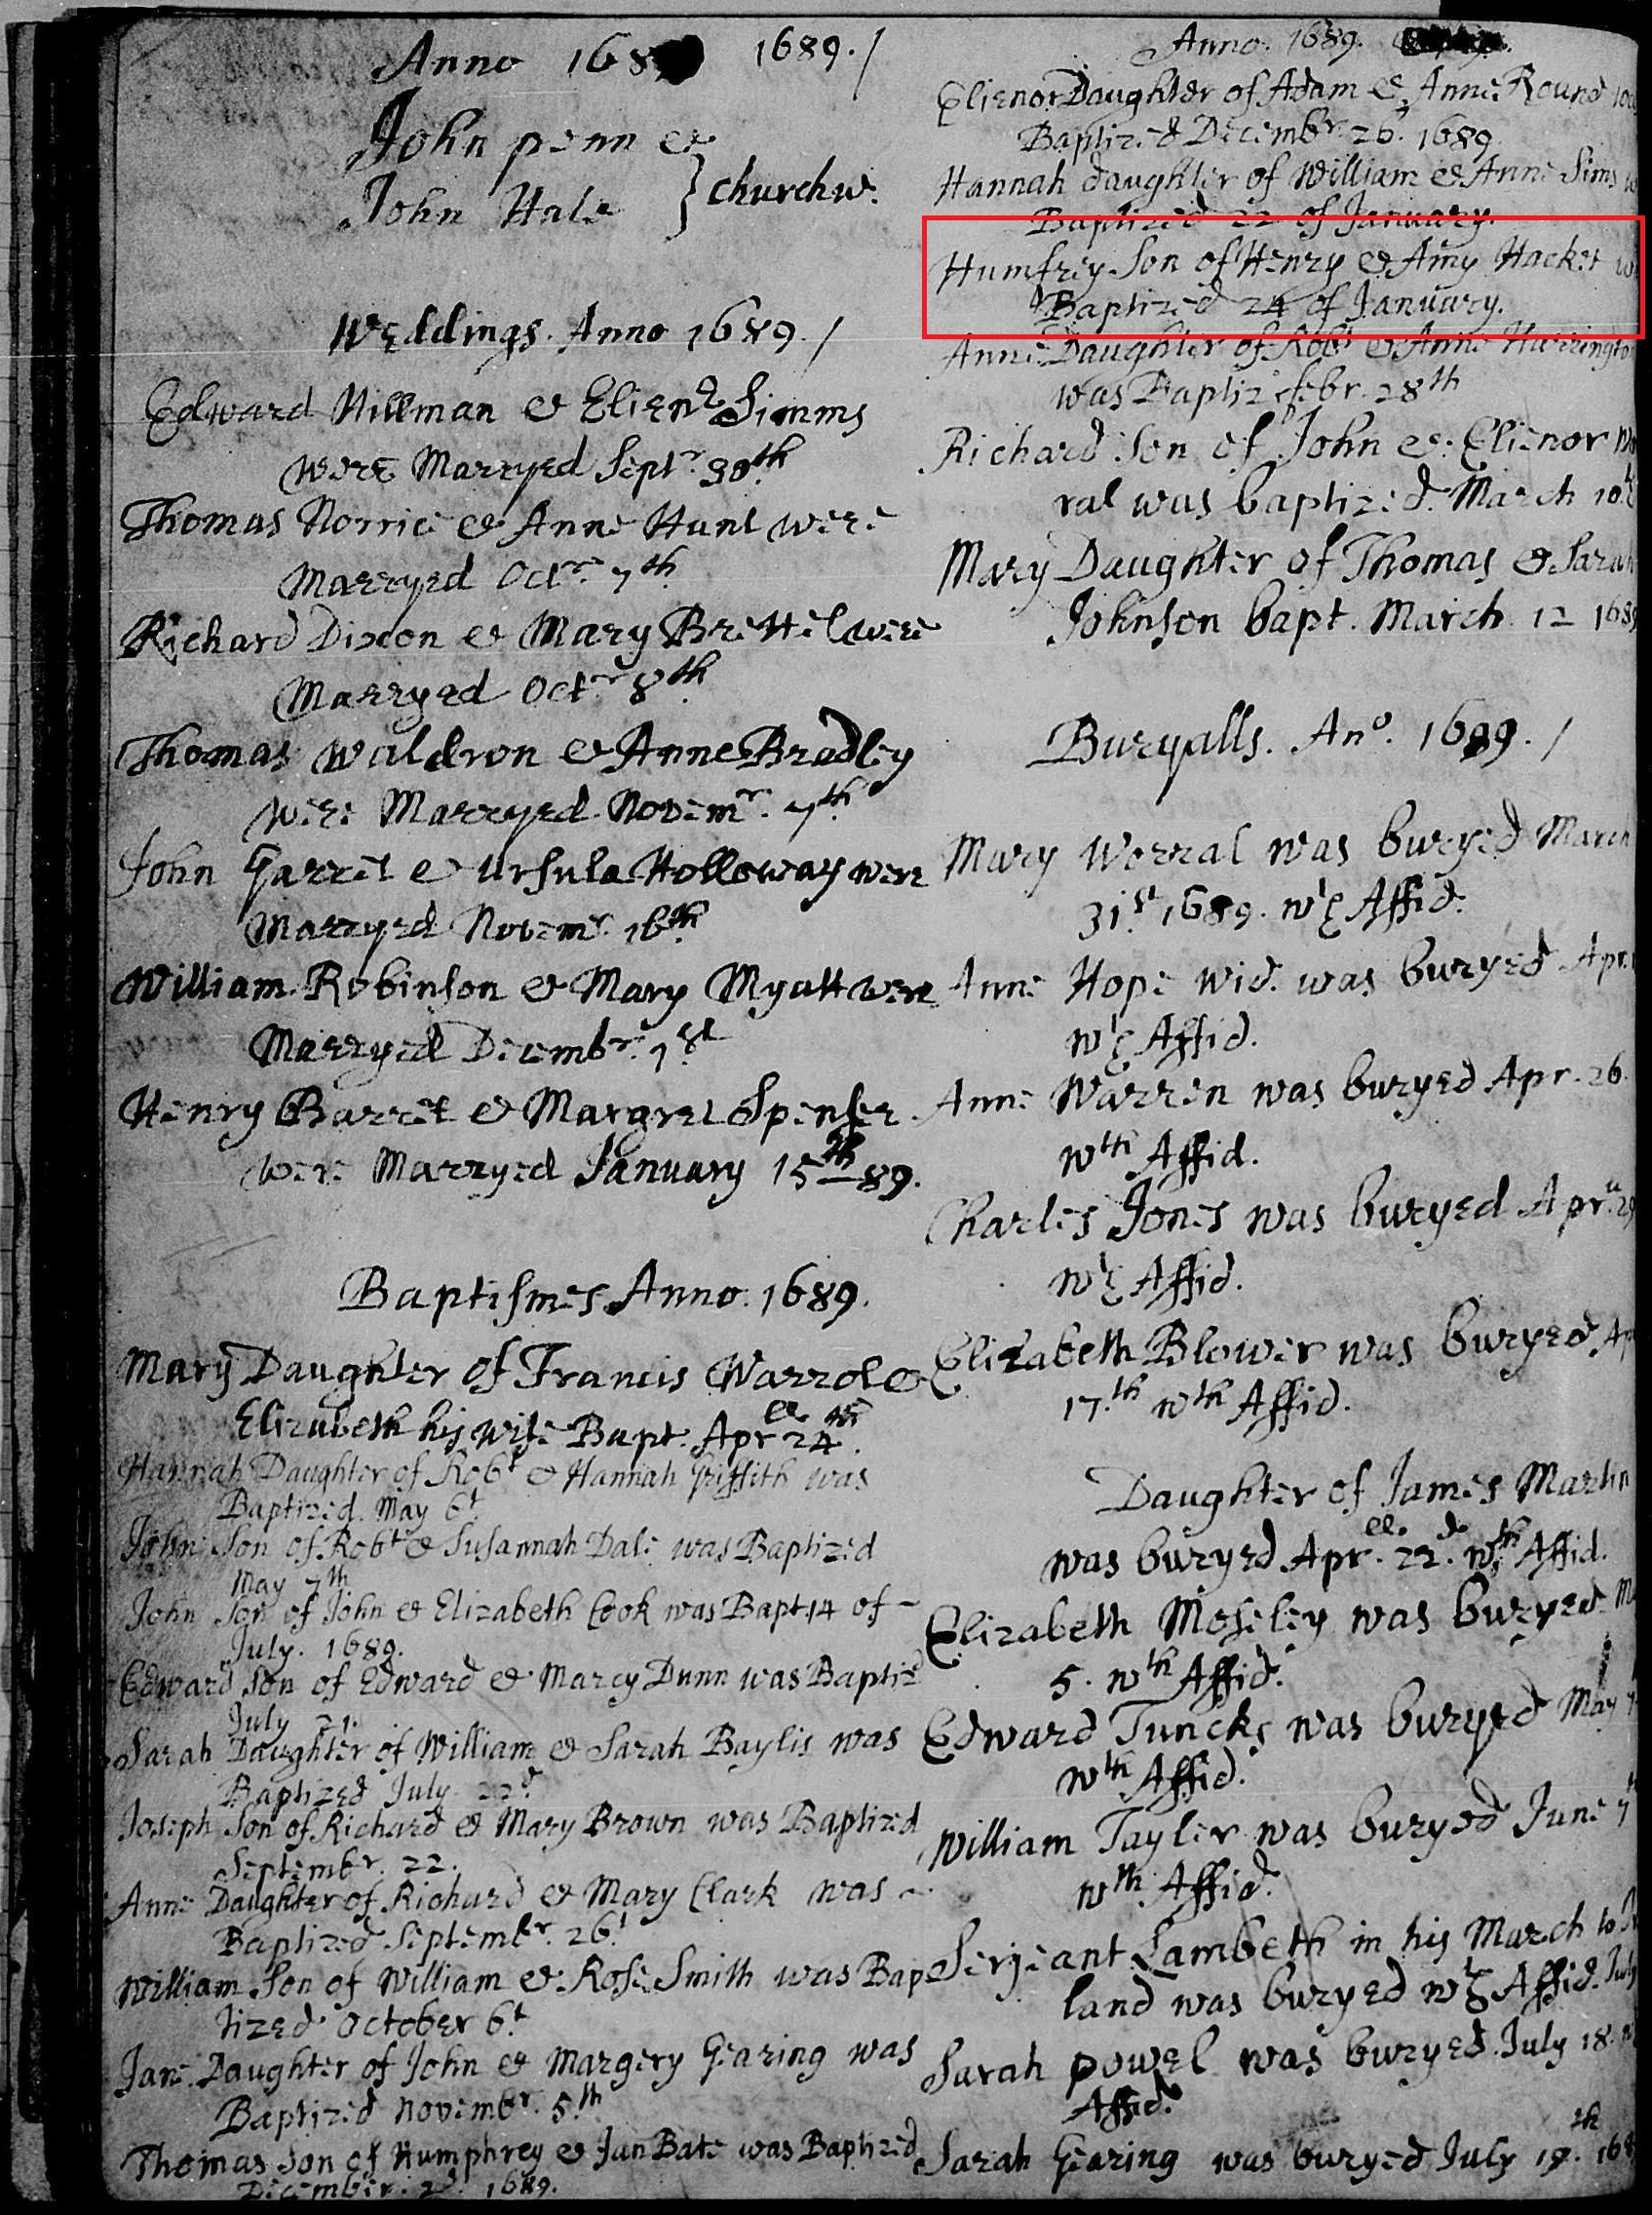 Anno 168 1689. /
John penn &
John Hale } Churchw.
Weddings. Anno 1689. /
Edward Hillman & Elienr Simms
were Marryed Septr 30th
Thomas Norrice & Anne Hunt were
Marryed Octr 7th
Richard Dixon & Mary Brettel were
Marryed Octr 8th
Thomas Waldron & Anne Bradley
were Marryed Novemr. 7th
John Garret & Ursula Holloway were
Marryed Novemr. 16th
William Robinson & Mary Myatt were
Marryed Decembr. 1st
Henry Barret & Margret Spenser
were Marryed January 15th 89.
Baptismes Anno. 1689.
Mary Daughter of Francis Warrol &
Elizabeth his wife Bapt. Aprll 24th.
Hannah Daughter of Robt & Hannah Griffith was
Baptized. May 6t
John Son of Robt & Susannah Dale was Baptized
May 7th
John Son of John & Elizabeth Cook was Bapt. 14 of
July. 1689.
Edward Son of Edward & Marcy Dunn was Baptizd
July 21.
Sarah Daughter of William & Sarah Baylis was
Baptized July 22d
Joseph Son of Richard & Mary Brown was Baptized
Septembr. 22.
Anne Daughter of Richard & Mary Clark was
Baptized Septembr. 26t
William Son of William & Rose Smith was Bap
tized October 6t
Jane Daughter of John & Margery Gearing was
Baptized Novembr. 5th
Thomas Son of Humphrey & Jan Bate was Baptized
December. 2d. 1689.
Anno. 1689.
Elienor Daughter of Adam & Anne Round
Baptized Decembr. 26t. 1689
Hannah daughter of William & Anne Sims
Baptized 22 of January.
Humfrey Son of Henry & Amy Hacket
Baptized 24 of January.
Anne Daughter of Robt & Anne Harrington
was Baptiz febr. 28th
Richard Son of John & Elienor
ral was baptized. March 10.
Mary Daughter of Thomas & Sarah
Johnson bapt. March. 12 1689
Buryalls. Ano. 1689. /
Mary Worral was buryed March
31st 1689. wth Affid.
Anne Hope wid. was buryed Apr.
wth Affid.
Anne Warren was buryed Apr. 26.
wth Affid.
Charles Jones was buryed Aprll
wth Affid.
Elizabeth Blower was buryed
17.th wth Affid.
Daughter of James Martin
was buryed Aprll. 22d. wth Affid.
Elizabeth Moseley was buryed
5. wth Affid.
Edward Tuncks was buryed May
wth Affid.
William Tayler was buryed June 7
wth Affid.
Serjeant Lambeth in his March to
land was buryed wth Affid. July
Sarah powel was buryed. July 18.
Affid.
Sarah Gearing was buryed July 19.th 168